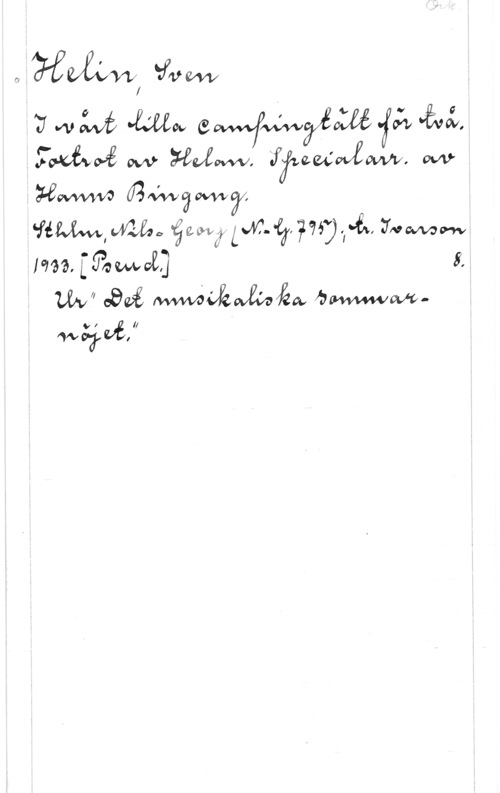 Ork.
Helin, Sven
I vårt lilla campingtält för två.
Foxtrot av Helan. Specialarr. av
Hanns Bingang.
Sthlm, Nils-Georg (N.-G. 795); tr. Ivarson
1933. [Pseud.] 8.
Ur "Det musikaliska sommar-
nöjet."